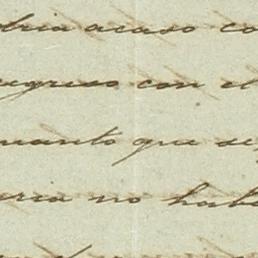 dria acaso co
regreso con el
uanto que se
ria no hab